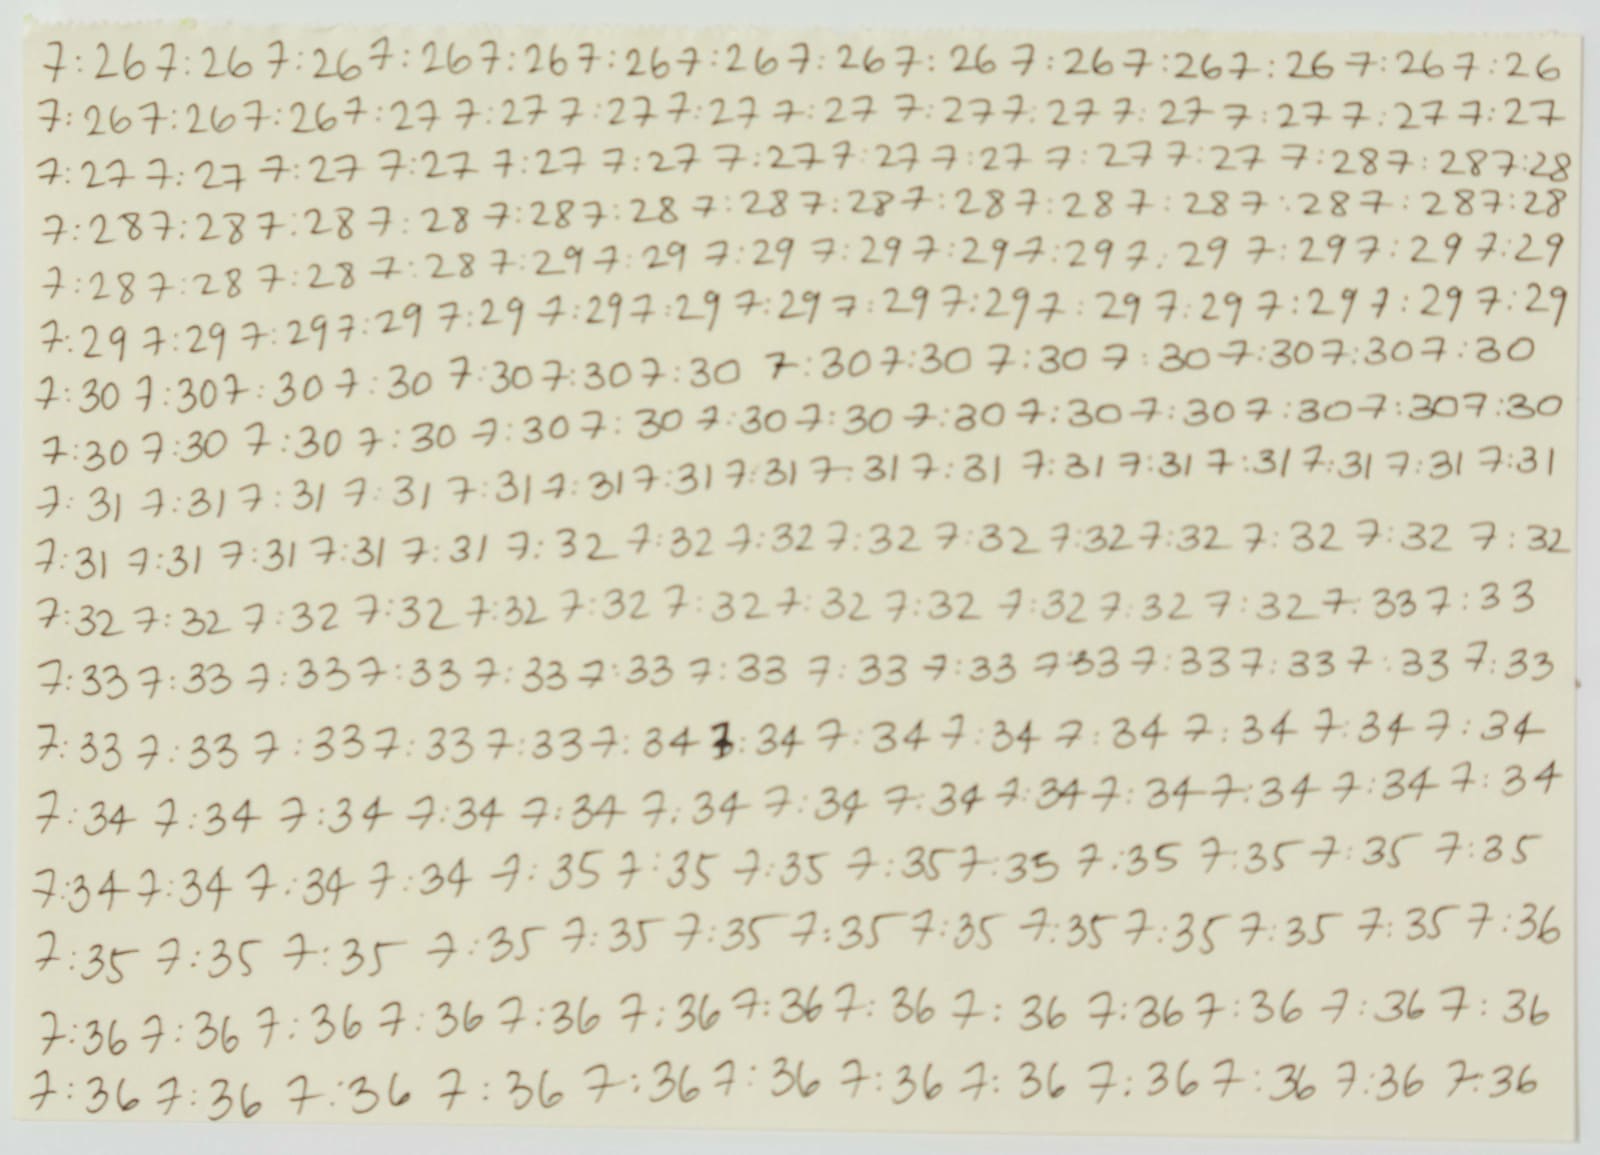 7:26 7:26 7:26 7:26 7:26 7:26 7:26 7:26 7:26 7:26 7:26 7:26 7:26 7:26
7:26 7:26 7:26 7:27 7:27 7:27 7:27 7:27 7:27 7:27 7:27 7:27 7:27 7:27
7:27 7:27 7:27 7:27 7:27 7:27 7:27 7:27 7:27 7:27 7:27 7:28 7:28 7:28
7:28 7:28 7:28 7:28 7:28 7:28 7:28 7:28 7:28 7:28 7:28 7:28 7:28 7:28
7:28 7:28 7:28 7:28 7:29 7:29 7:29 7:29 7:29 7:29 7:29 7:29 7:29 7:29
7:29 7:29 7:29 7:29 7:29 7:29 7:29 7:29 7:29 7:29 7:29 7:29 7:29 7:29 7:29
7:30 7:30 7:30 7:30 7:30 7:30 7:30 7:30 7:30 7:30 7:30 7:30 7:30 7:30
7:30 7:30 7:30 7:30 7:30 7:30 7:30 7:30 7:30 7:30 7:30 7:30 7:30 7:30
7:31 7:31 7:31 7:31 7:31 7:31 7:31 7:31 7:31 7:31 7:31 7:31 7:31 7:31 7:31 7:31
7:31 7:31 7:31 7:31 7:31 7:32 7:32 7:32 7:32 7:32 7:32 7:32 7:32 7:32 7:32
7:32 7:32 7:32 7:32 7:32 7:32 7:32 7:32 7:32 7:32 7:32 7:32 7:33 7:33
7:33 7:33 7:33 7:33 7:33 7:33 7:33 7:33 7:33 7:33 7:33 7:33 7:33 7:33
7:33 7:33 7:33 7:33 7:33 7:34 7:34 7:34 7:34 7:34 7:34 7:34 7:34
7:34 7:34 7:34 7:34 7:34 7:34 7:34 7:34 7:34 7:34 7:34 7:34 7:34
7:34 7:34 7:34 7:34 7:35 7:35 7:35 7:35 7:35 7:35 7:35 7:35 7:35
7:35 7:35 7:35 7:35 7:35 7:35 7:35 7:35 7:35 7:35 7:35 7:35 7:36
7:36 7:36 7:36 7:36 7:36 7:36 7:36 7:36 7:36 7:36 7:36 7:36 7:36
7:36 7:36 7:36 7:36 7:36 7:36 7:36 7:36 7:36 7:36 7:36 7:36